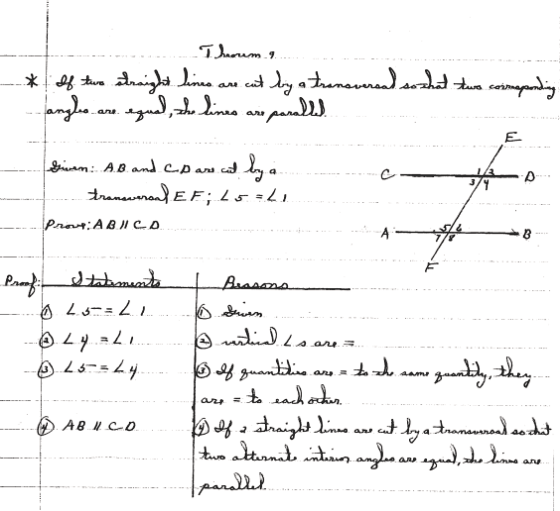 Theorem 9
* If two straight lines are cut by a transversal so that two corresponding
angles are equal, the lines are parallel.
E
Given: AB and CD are cut by a
C 1 3 D
3 4
transversal EF; ∠5 = ∠1
Prove: AB ∥ CD
A 5 6 B
7 8
F
Proof: Statements Reasons
① ∠5 = ∠1 ① Given
② ∠4 = ∠1 ② vertical ∠s are =
③ ∠5 = ∠4 ③ If quantities are = to the same quantity, they
are = to each other.
④ AB ∥ CD ④ If 2 straight lines are cut by a transversal so that
two alternate interior angles are equal, the lines are
parallel.